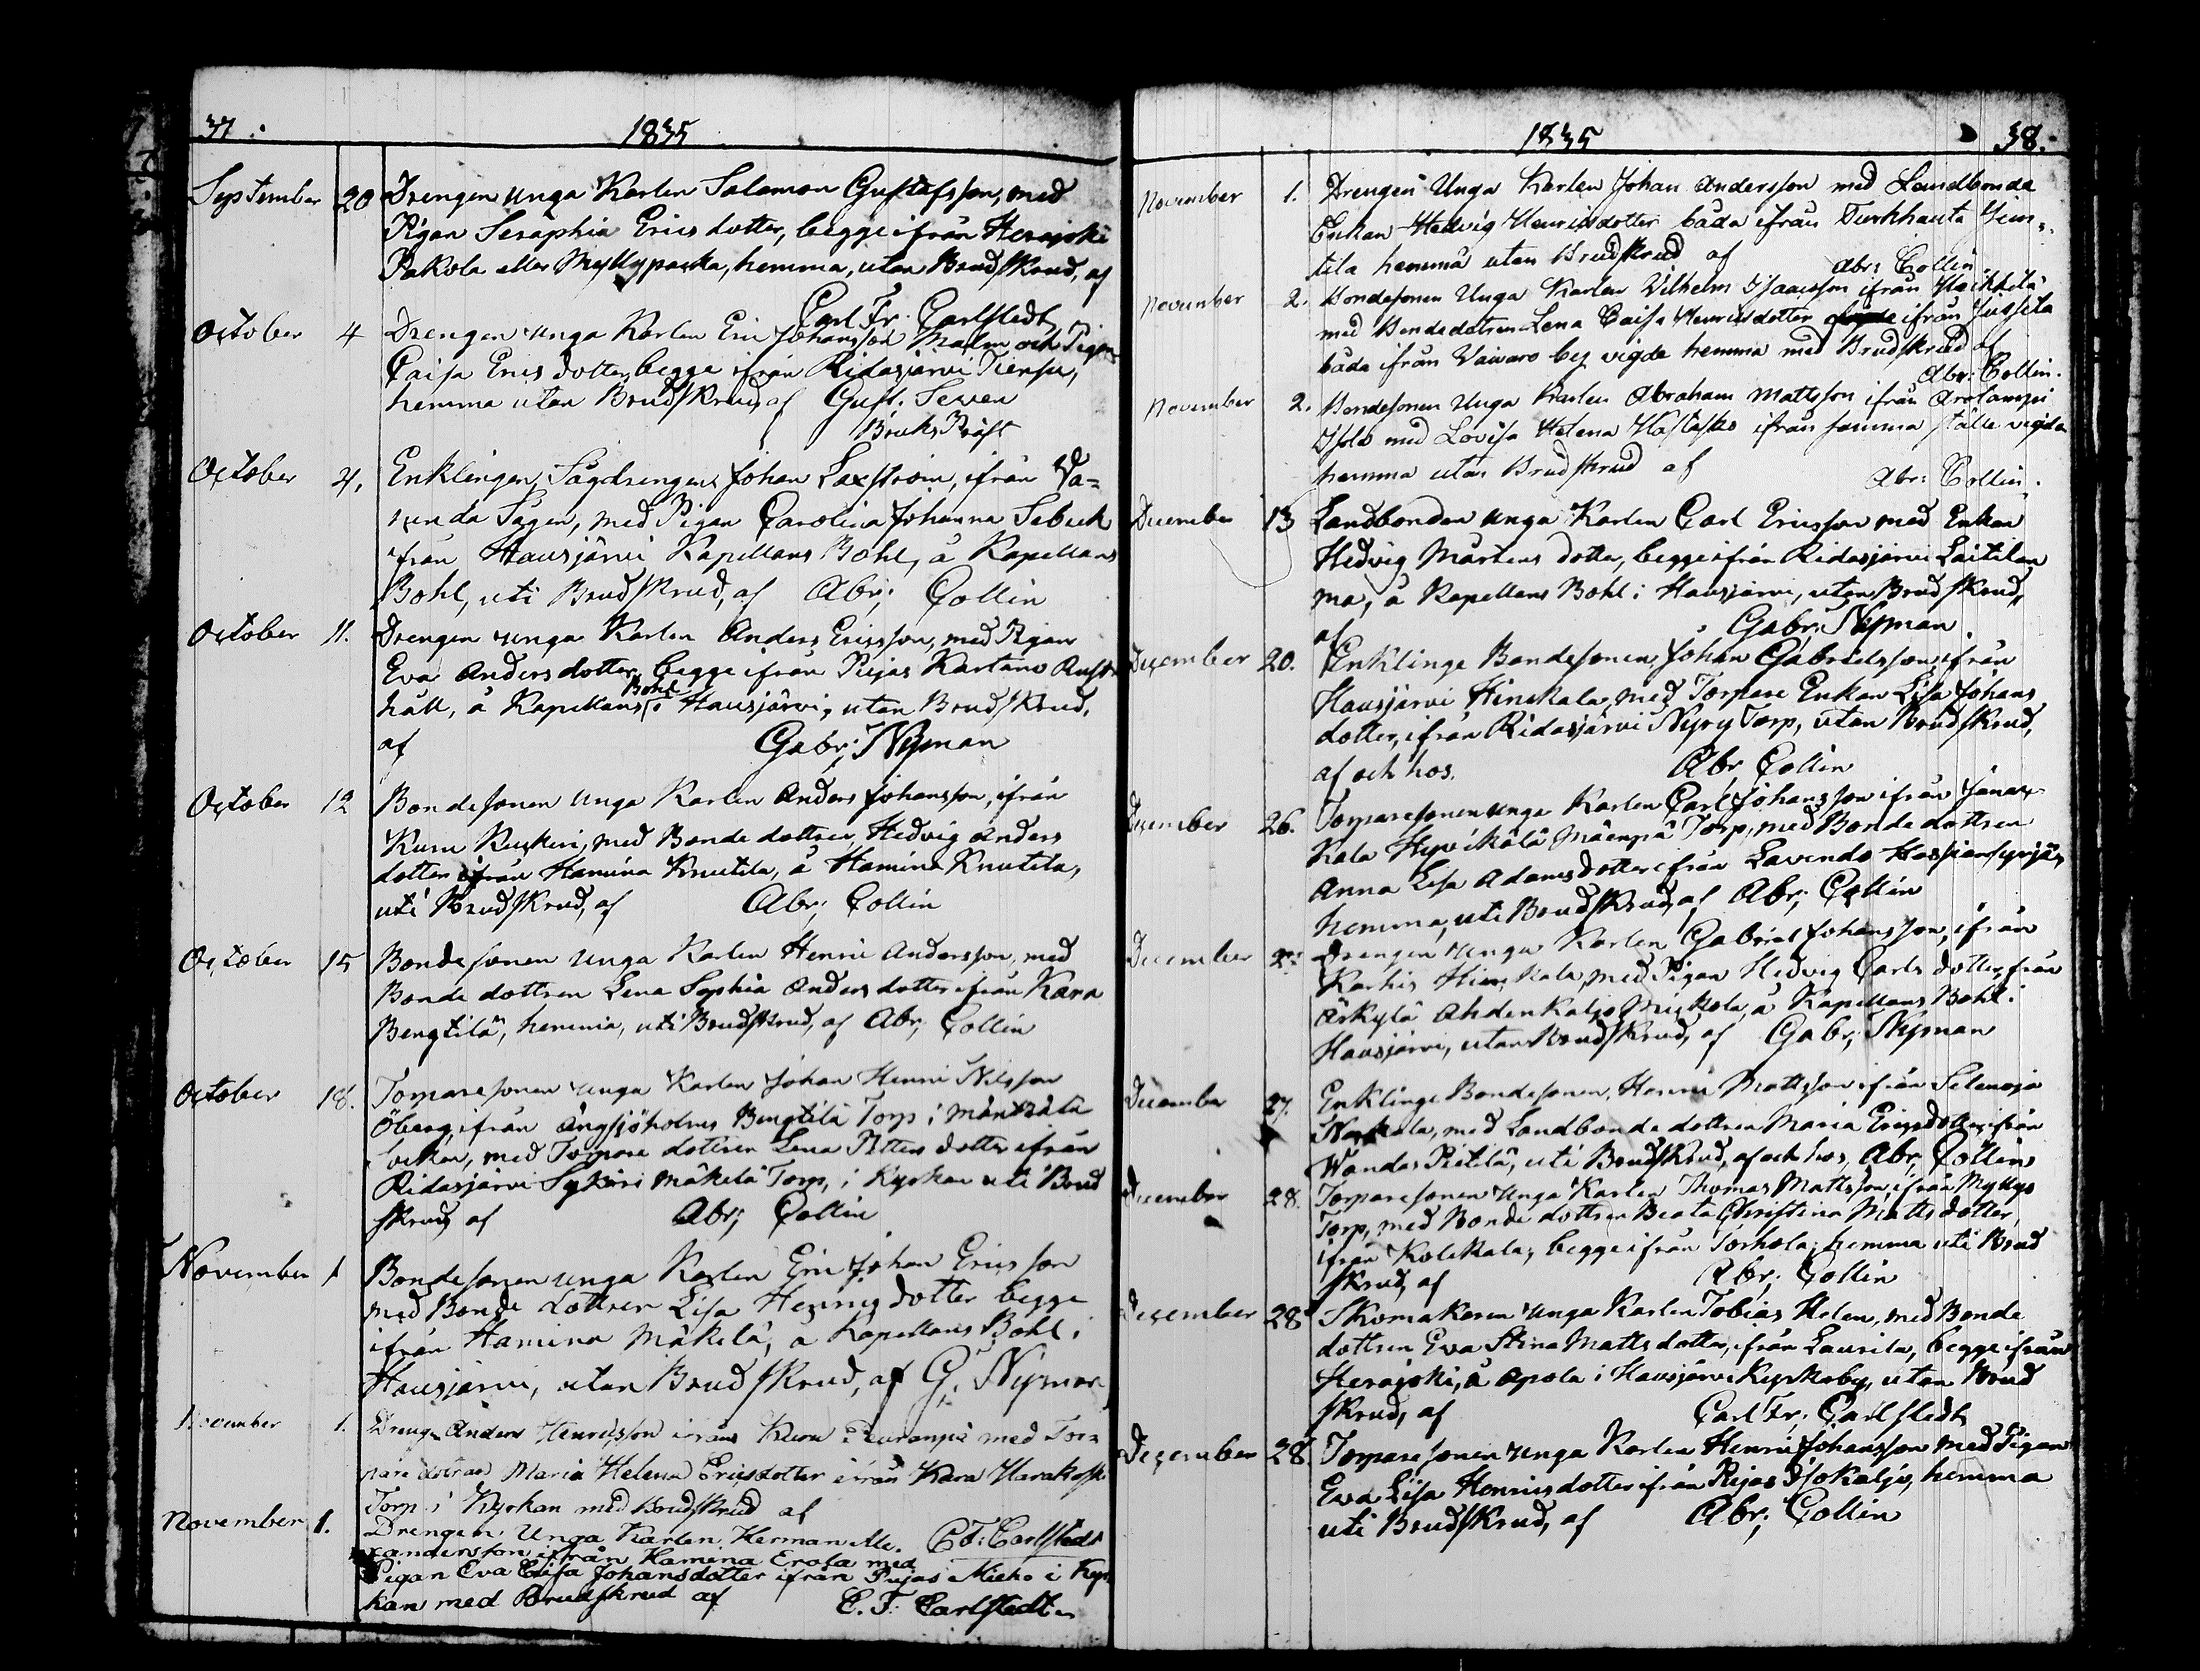 37. 1835
September 20 Drengen unga Karlen Salamon Gustafsson, med
Pigan Seraphia Erics dotter, begge ifrån Herajoki
Pakola eller Myllyparka, hemma, utan Brudskrud, af
Carl Fr. Carlstedt
October 4 Drengen unga Karlen Eric Johansson Malm och Pigan
Caisa Erics dotter, begge ifrån Ridasjärvi Tiensu,
hemma utan Brudskrud, af Gust. Seven
Bruks Präst
October 4. Enklingen, Sågdrengen Johan Laxström, ifrån
Sågen, med Pigan Carolina Johanna Sebuck
ifrån Hausjärvi Kapellans Bohl, å Kapellans
Bohl, uti Brudskrud, af Abr; Collin
October 11. Drengen unga Karlen Anders Ericsson, med Pigan
Eva Anders dotter, begge ifrån Pujas Kartano Rust
håll, å Kapellans Bohl i Hausjärvi, utan Brudskrud,
af Gabr; Nyman
October 12 Bondesonen unga Karlen Anders Johansson, ifrån
Kuru, med Bonde dottren Hedvig Anders
dotter ifrån Hamina Knutila, å Hamina Knutila,
uti Brudskrud, af Abr; Collin
October 15 Bondesonen unga Karlen Henric Andersson, med
Bonde dottren Lena Sophia Anders dotter ifrån Kara
Bengtilä, hemma, uti Brudskrud, af Abr; Collin
October 18. Torparesonen unga Karlen Johan Henric Nilsson
Öberg, ifrån Ängsjöholms Bengtilä Torp i Mäntzälä
Socken, med Torpare dottren Lena Petters dotter ifrån
Ridasjärvi Sykäri Mäkelä Torp, i Kyrkan uti Brud
skrud, af Abr; Collin
November 1 Bondesonen unga Karlen Eric Johan Ericsson
med Bonde dottren Lisa Henrics dotter begge
ifrån Hamina Mäkelä, å Kapellans Bohl i
Hausjärvi, utan Brudskrud, af G. Nyman
November 1. Dreng. Anders Henricsson ifrån Kuru med Tor-
pare dottren Maria Helena Ericsdotter ifrån Kara Harakoski
Torp i Kyrkan med Brudskrud af
November 1. Drengen Unga Karlen Herman Ale. C F: Carlstedt
xandersson ifrån Hamina Erola med
Pigan Eva Lisa Johansdotter ifrån Pujas Mieho i Kyr
kan med Brudskrud af C. F. Carlstedt
1835 38.
November 1. Drengen Unga Karlen Johan Andersson med Landbonde
Enkan Hedvig Henricsdotter båda ifrån Turkhauta
tila hemma utan Brudskrud af Abr: Collin
November 2. Bondesonen Unga Karlen Vilhelm Isaacsson ifrån Heikkilä
med Bondedotren Lena Caisa Henricsdotter ifrån Jussila
båda ifrån Vaivaro by vigde hemma med Brudskrud af
Abr: Collin.
November 2. Bondesonen Unga Karlen Abraham Mattsson ifrån Arolampi
Isolo med Lovisa Helena ifrån samma ställe vigda
hemma utan Brudskrud af Abr: Collin.
December 13 Landbonden unga Karlen Carl Ericsson med Enkan
Hedvig Mårtens dotter, begge ifrån Ridasjärvi Laitilan
ma, å Kapellans Bohl i Hausjärvi, utan Brudskrud,
af Gabr; Nyman
December 20. Enklinge Bondesonen, Johan Gabrielsson, ifrån
Hausjärvi Hinskala, med Torpare Enkan Lisa Johans
dotter, ifrån Ridasjärvi Nyry Torp, utan Brudskrud,
af och hos. Abr Collin
December 26. Torparesonen unga Karlen Carl Johansson ifrån Janak-
kala Hyvikälä Mäenpä Torp, med Bonde dottren
Anna Lisa Adams dotter ifrån Lavendo
hemma, uti Brudskrud, af Abr; Collin
December 27 Drengen unga Karlen Gabriel Johansson, ifrån
Karhis Hinskala, med Pigan Hedvig Carls dotter, från
Ärkylä Ahdenkaljo Mickola, å Kapellans Bohl i
Hausjärvi, utan Brudskrud, af Gabr; Nyman
December 27. Enklinge Bondesonen, Henric Mattsson ifrån Selenoja
med Landbonde dottren Maria Ericsdotter ifrån
Wandas Pietilä, uti Brudskrud, af och hos, Abr; Collin
December 28. Torparesonen unga Karlen Thomas Mattsson, ifrån Myllys
Torp, med Bonde dottren Beata Christina Matts dotter,
ifrån Kolekala, begge ifrån Torhola, hemma uti Brud
skrud, af Abr; Collin
December 28 Skomakaren unga Karlen Tobias Helen, med Bonde
dottren Eva Stina Matts dotter, ifrån Laurila, begge ifrån
Herajoki, å Apola i Hausjärvi Kyrkoby, utan Brud
skrud, af Carl Fr; Carlstedt
December 28 Torparesonen unga Karlen Henric Johansson med Pigan
Eva Lisa Henricsdotter ifrån Pujas Isokaljo, hemma
uti Brudskrud, af Abr; Collin